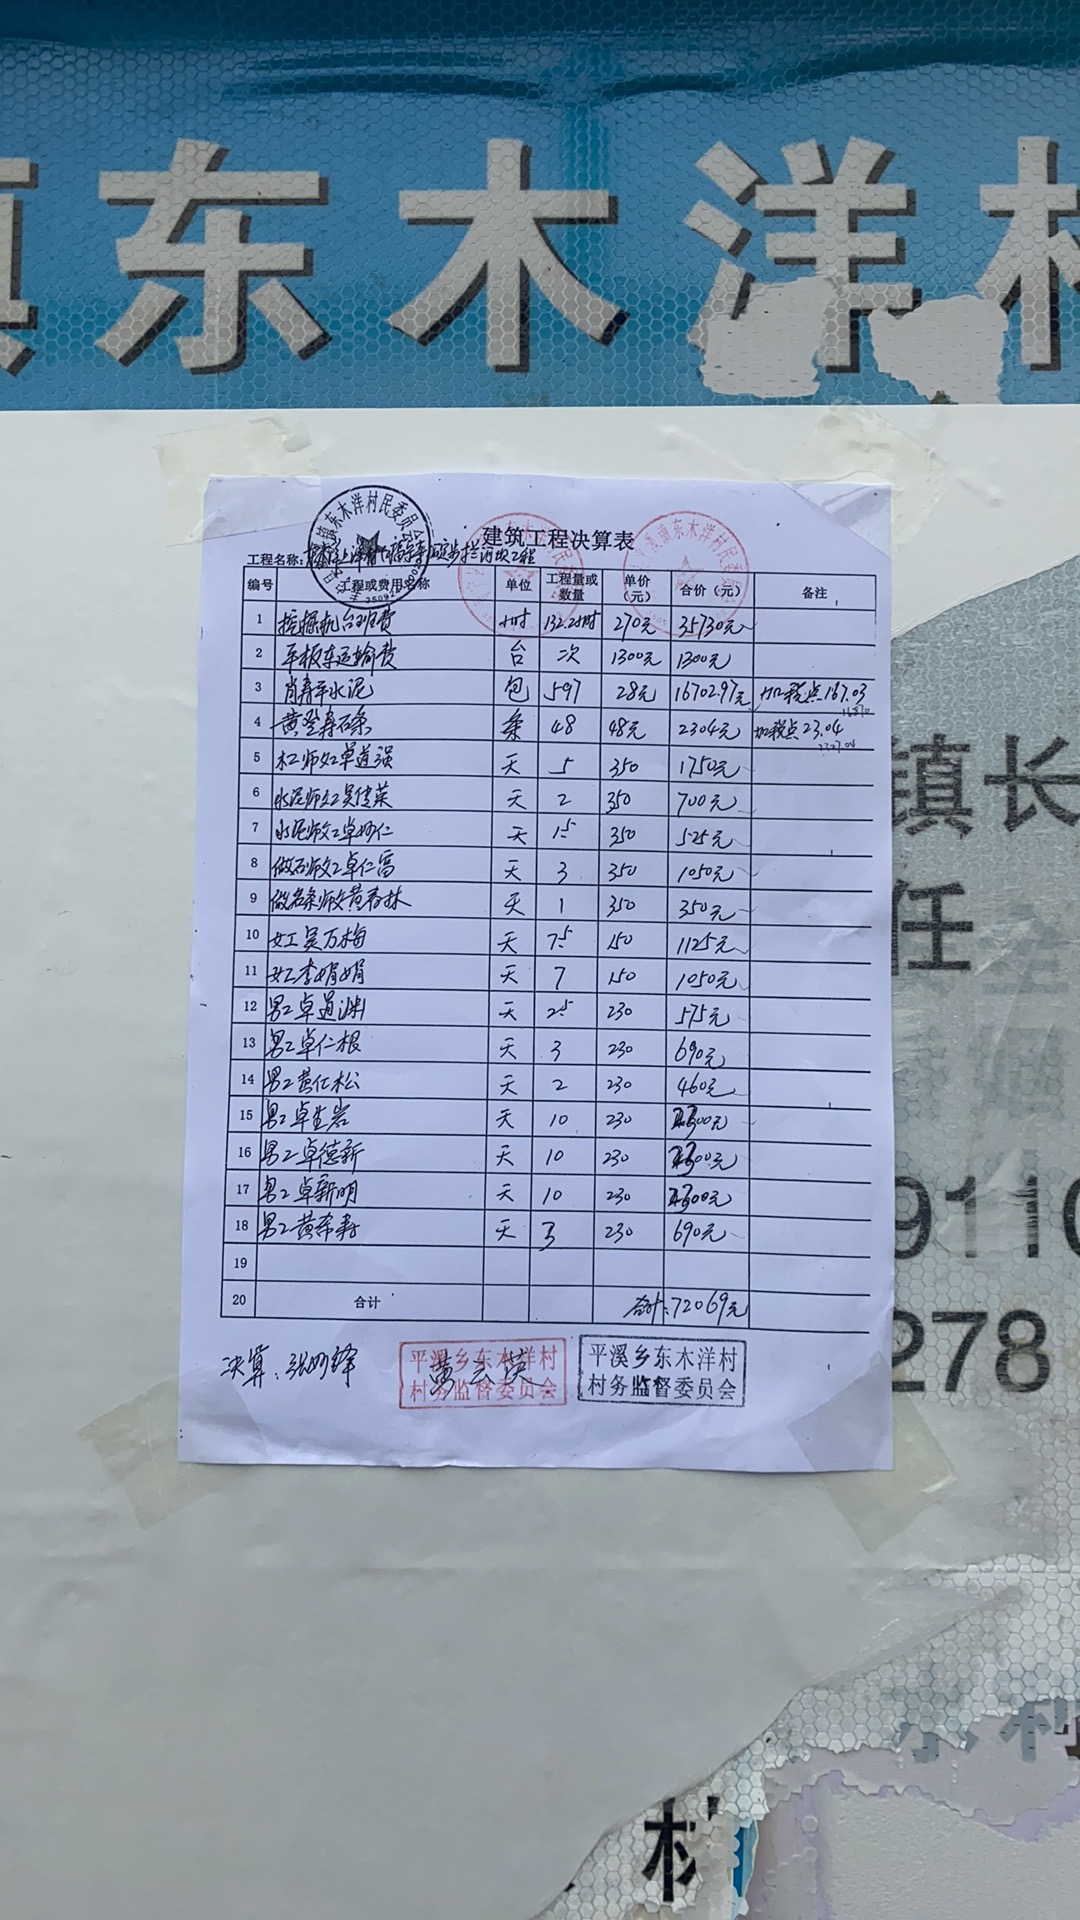 镇东木洋村
建筑工程决算表
工程名称:
编号 工程或费用名称 单位 工程量或数量 单价（元） 合价（元） 备注
1 挖掘机台班费 小时 132.2小时 270元 35730元
2 平板车运输费 台 次 1300元 1300元
3 肖寿平水泥 包 597 28元 16702.97元 加税点167.03
16870
4 黄登寿石条 条 48 48元 2304元 加税点23.04
2327.04
5 木工师父卓道强 天 5 350 1750元
6 水泥师父吴传菜 天 2 350 700元
7 水泥师父卓妙仁 天 1.5 350 525元
8 做石师父卓仁富 天 3 350 1050元
9 做石条师父黄春林 天 1 350 350元
10 女工吴万梅 天 7.5 150 1125元
11 女工李娟娟 天 7 150 1050元
12 男工卓道渊 天 2.5 230 575元
13 男工卓仁根 天 3 230 690元
14 男工黄仁松 天 2 230 460元
15 男工卓生岩 天 10 230 2300元
16 男工卓德新 天 10 230 2300元
17 男工卓新明 天 10 230 2300元
18 男工黄奇寿 天 3 230 690元
19
20 合计 合计:72069元
决算:
平溪乡东木洋村
村务监督委员会
平溪乡东木洋村
村务监督委员会
镇长
任
9110
278